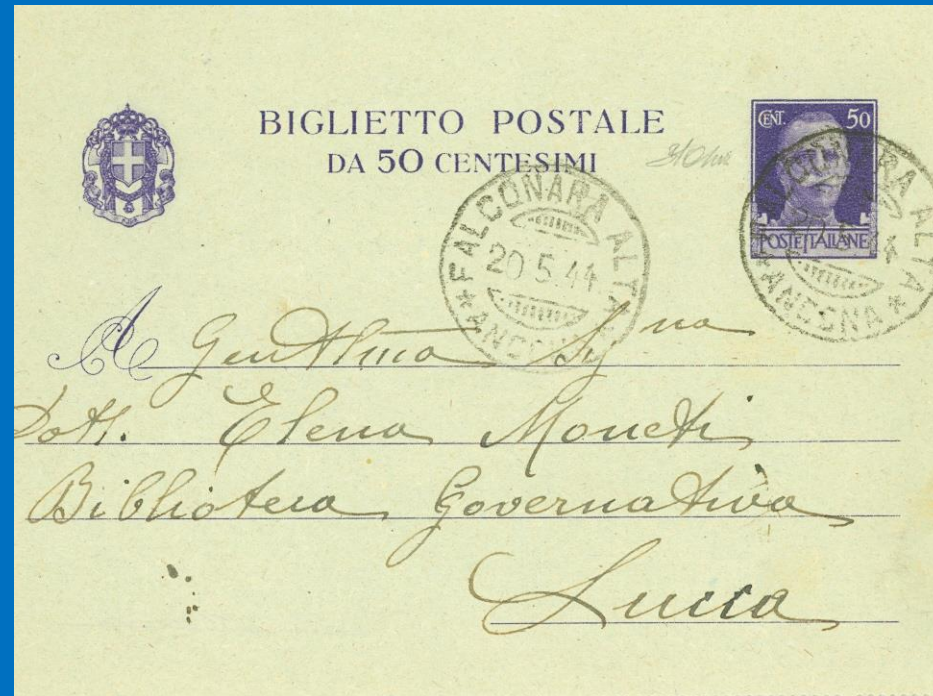 BIGLIETTO POSTALE
DA 50 CENTESIMI
CENT. 50
POSTE ITALIANE
FALCONARA ALTA
20.5.44
* ANCONA
FALCONARA ALTA
5.44
* ANCONA *
A Gentilma Signa
Dott. Elena Moneti
Biblioteca Governativa
Lucca